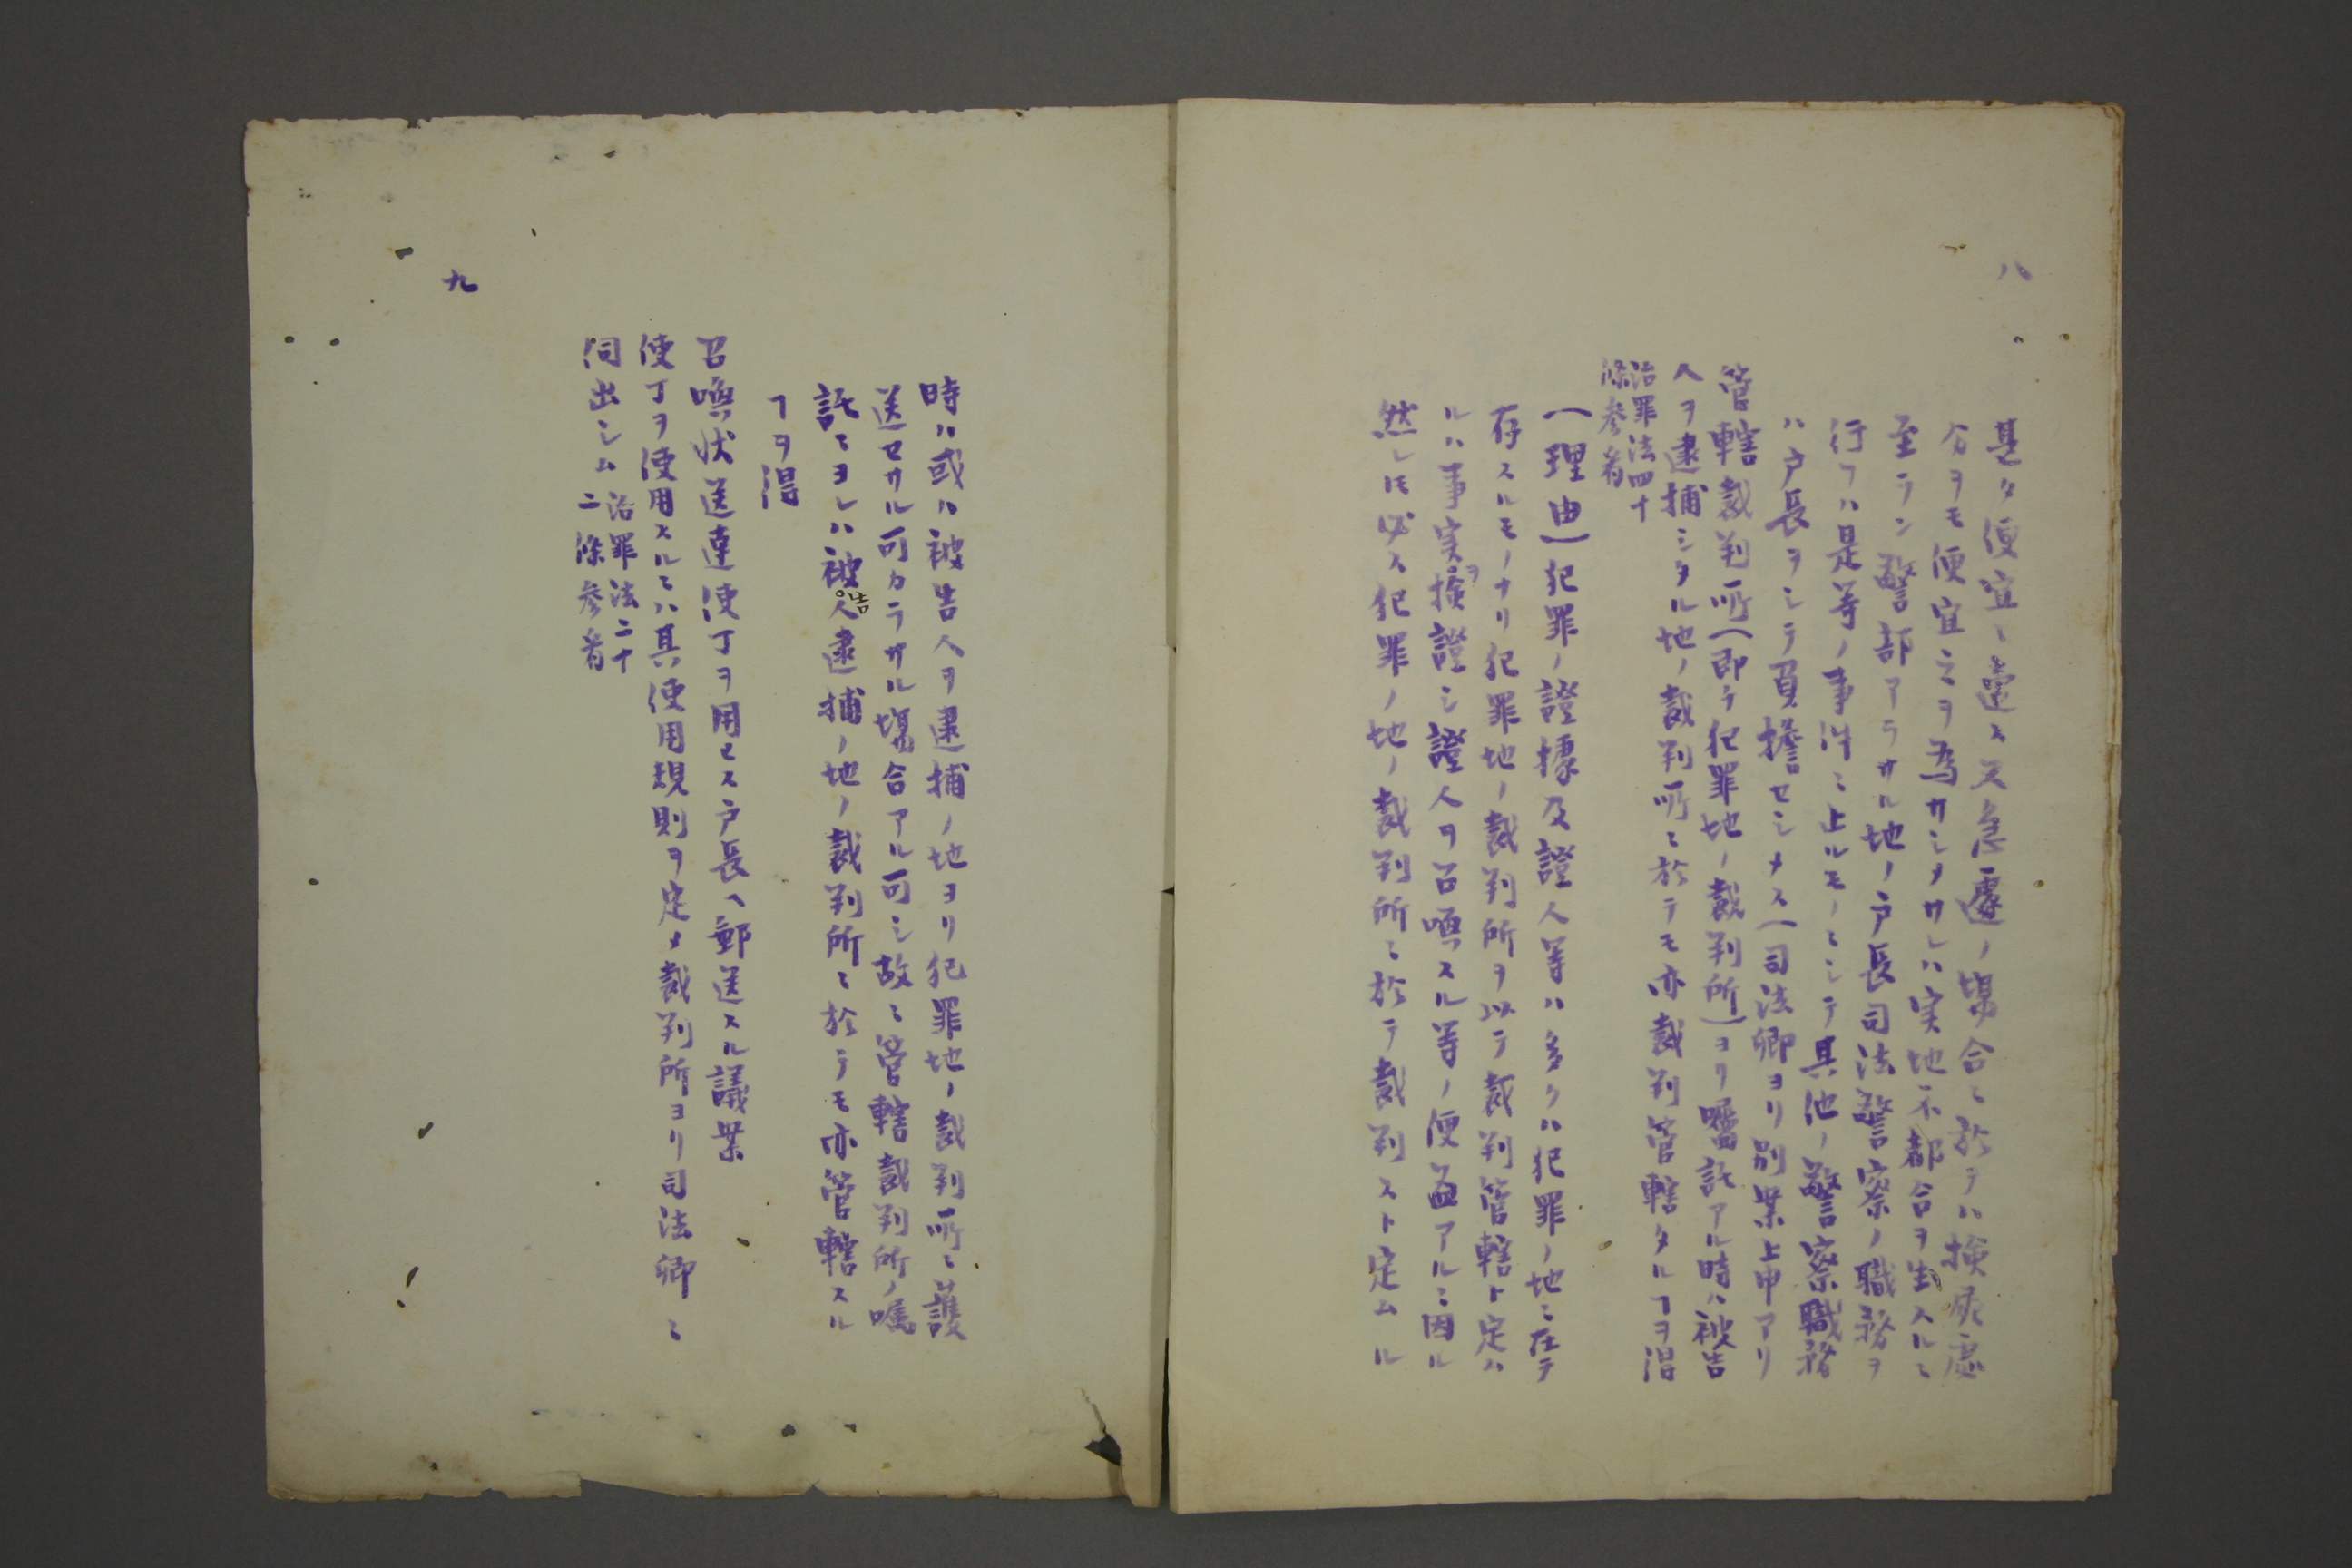 八
甚タ便宜ニ違ス又急遽ノ場合ニ於テハ検屍処
分ヲモ便宜之ヲ為サシメサレハ実地不都合ヲ生スルニ
至ラン警部アラサル地ノ戸長司法警察ノ職務ヲ
行フハ是等ノ事件ニ止ルモノニシテ其他ノ警察職務
ハ戸長ヲシテ負擔セシメス(司法卿ヨリ別業上申アリ
管轄裁判所(即チ犯罪地ノ裁判所)ヨリ囑託アル時ハ被告
人ヲ逮捕シタル地ノ裁判所ニ於テモ亦裁判管轄タルヿヲ得
治罪法四十
條参看
(理由)犯罪ノ證據及證人等ハ多クハ犯罪ノ地ニ在テ
存スルモノナリ犯罪地ノ裁判所ヲ以テ裁判管轄ト定ム
ルハ事実ヲ検證シ證人ヲ召喚スル等ノ便益アルニ因ル
然レ𪜈必ス犯罪ノ地ノ裁判所ニ於テ裁判スト定ムル
時ハ或ハ被告人ヲ逮捕ノ地ヨリ犯罪地ノ裁判所ニ護
送セサル可カラサル場合アル可シ故ニ管轄裁判所ノ囑
託ニヨレハ被告人逮捕ノ地ノ裁判所ニ於テモ亦管轄スル
ヿヲ得
召喚状送達使丁ヲ用ヒス戸長ヘ郵送スル議案
使丁ヲ使用スルニハ其使用規則ヲ定メ裁判所ヨリ司法卿ニ
伺出シム
治罪法二十
二條参看
九